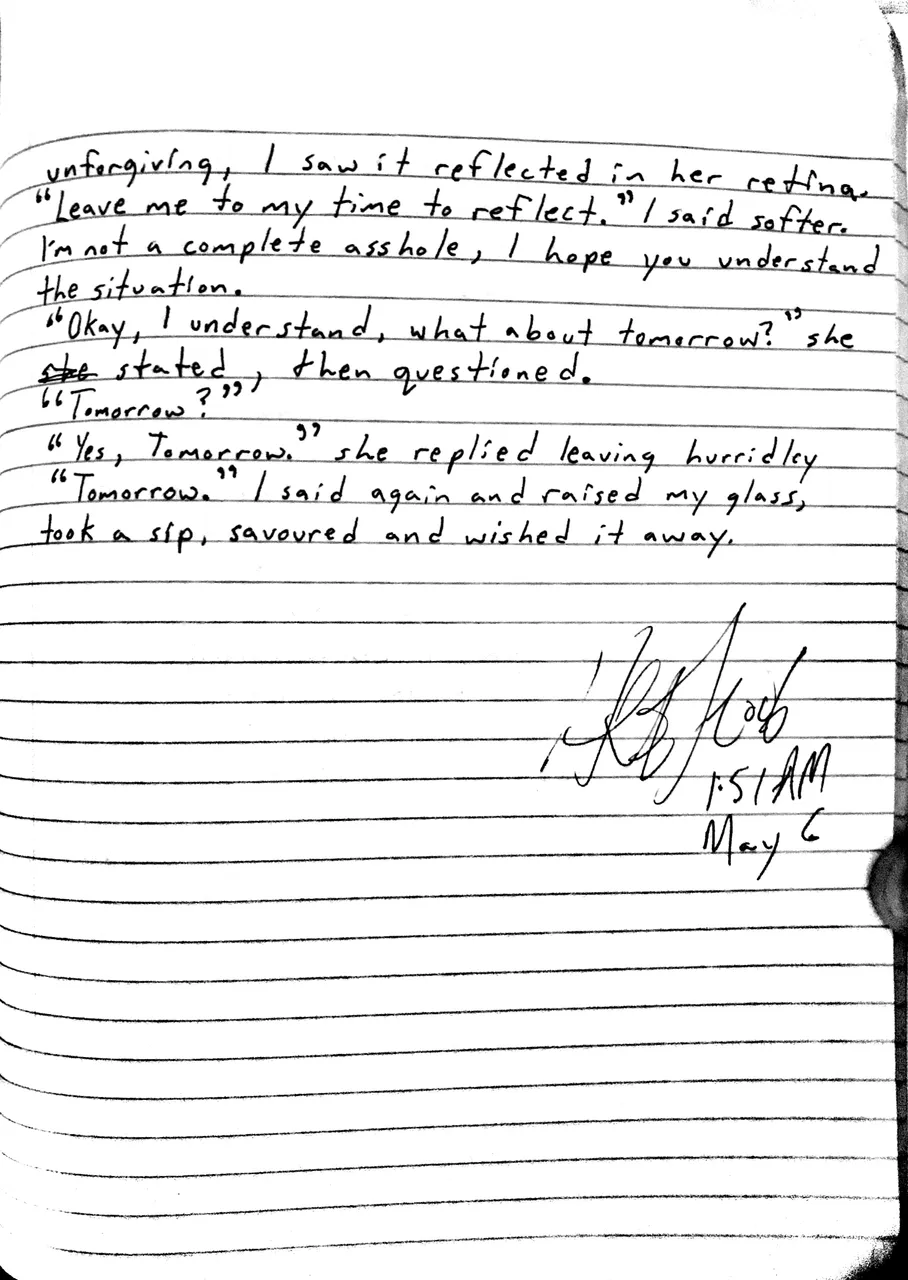 unforgiving, I saw it reflected in her retina.
"Leave me to my time to reflect." I said softer.
I'm not a complete asshole, I hope you understand
the situation.
"Okay, I understand, what about tomorrow?" she
she stated, then questioned.
"Tomorrow?"
"Yes, Tomorrow." she replied leaving hurridley
"Tomorrow." I said again and raised my glass,
took a sip, savoured and wished it away.
1:51 AM
May 6